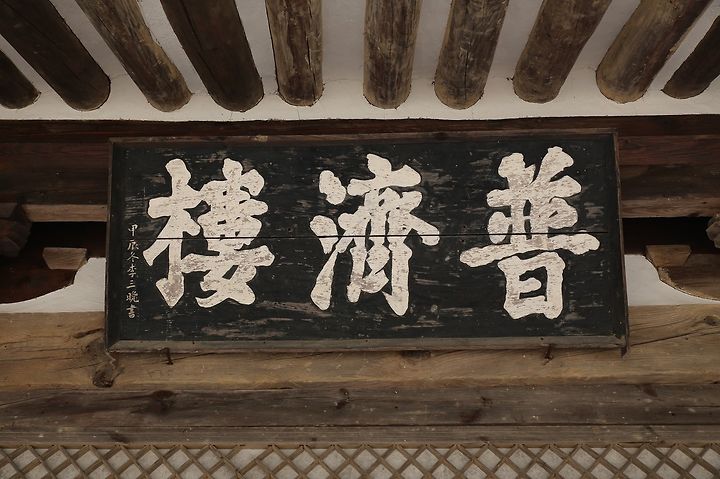 普濟樓
甲辰冬李三晩書